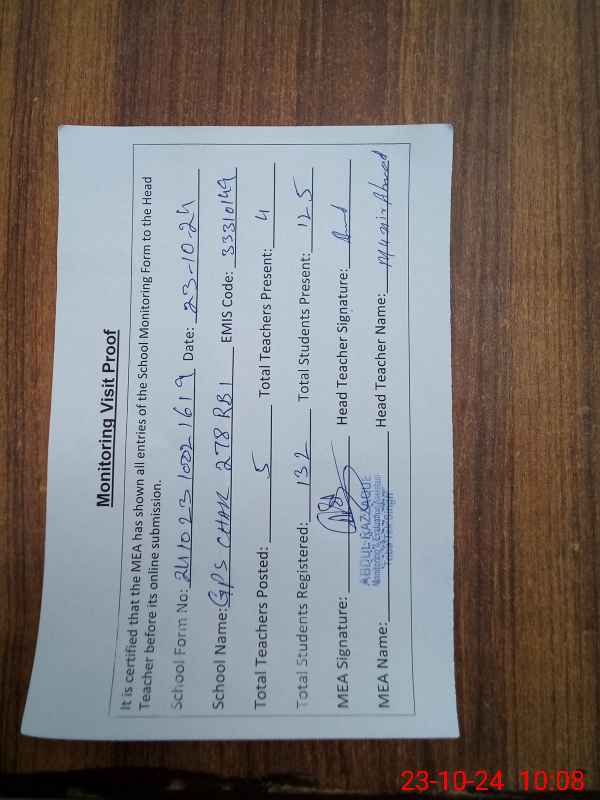 Monitoring Visit Proof
It is certified that the MEA has shown all entries of the School Monitoring Form to the Head
Teacher before its online submission.
School Form No: 2410231002 1619 Date: 23-10-24
School Name: GPS CHAK 278 RB I EMIS Code: 33310149
Total Teachers Posted: 5 Total Teachers Present: 4
Total Students Registered: 132 Total Students Present: 125
MEA Signature: Head Teacher Signature:
ABDUL RAZZAQUE
Monitoring & Evaluation Assistant
MEA Name: Head Teacher Name: Ahmed
23-10-24 10:08